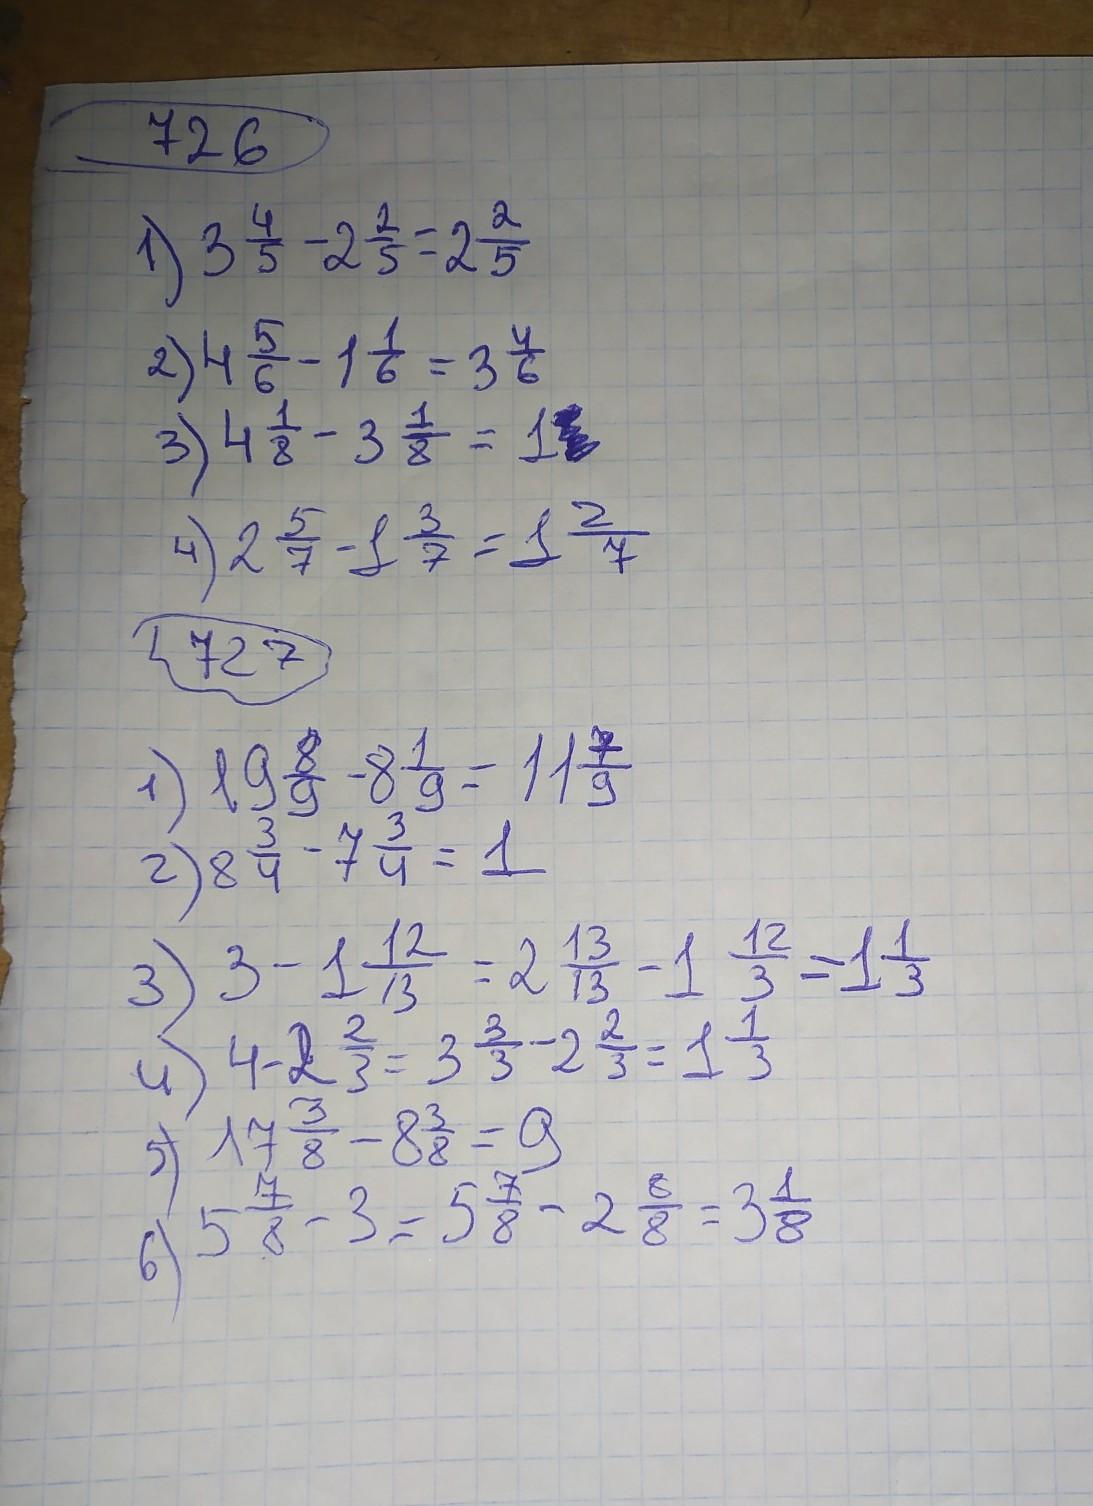 726
1) 3 4/5 - 2 2/5 = 2 2/5
2) 4 5/6 - 1 1/6 = 3 4/6
3) 4 1/8 - 3 1/8 = 1
4) 2 5/7 - 1 3/7 = 1 2/7
727
1) 19 8/9 - 8 1/9 = 11 7/9
2) 8 3/4 - 7 3/4 = 1
3) 3 - 1 12/13 = 2 13/13 - 1 12/3 = 1 1/3
4) 4 - 2 2/3 = 3 3/3 - 2 2/3 = 1 1/3
5) 17 3/8 - 8 3/8 = 9
6) 5 7/8 - 3 = 5 7/8 - 2 8/8 = 3 1/8